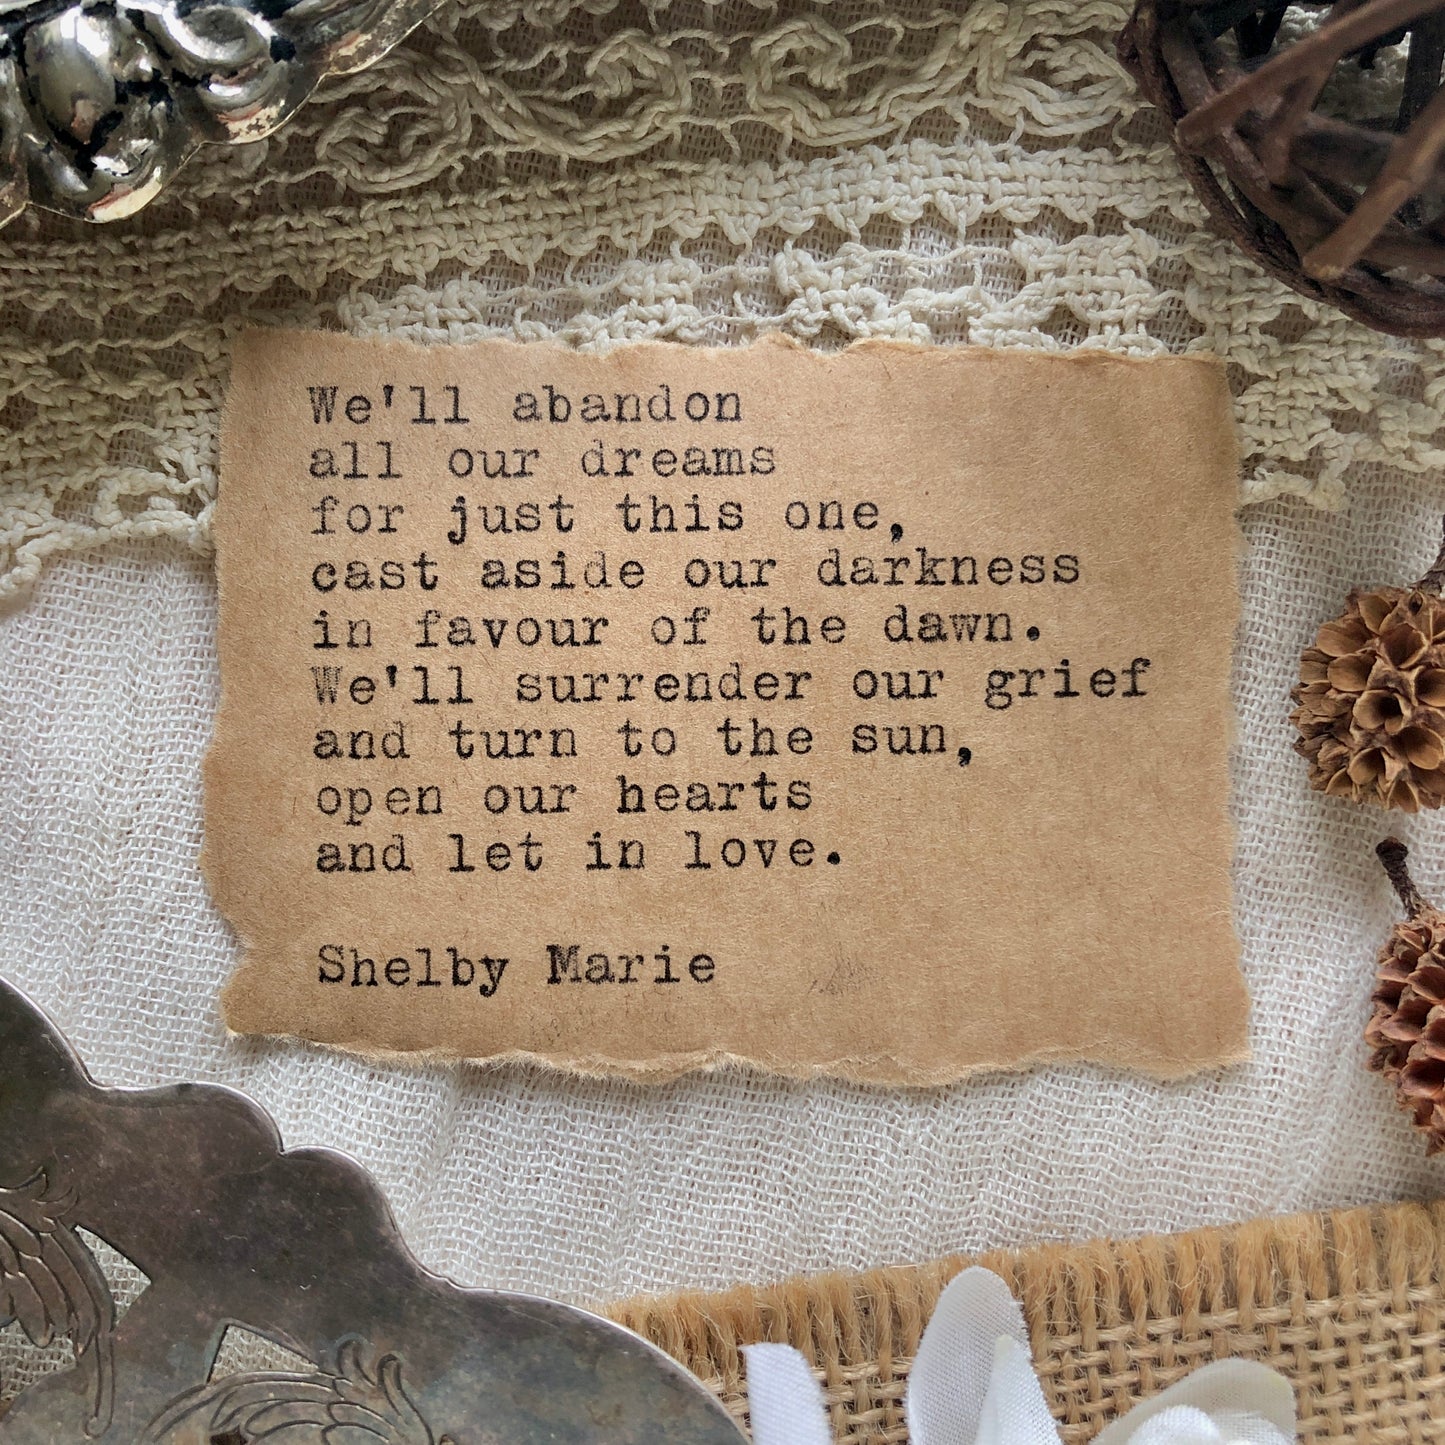 We'll abandon
all our dreams
for just this one,
cast aside our darkness
in favour of the dawn.
We'll surrender our grief
and turn to the sun,
open our hearts
and let in love.
Shelby Marie